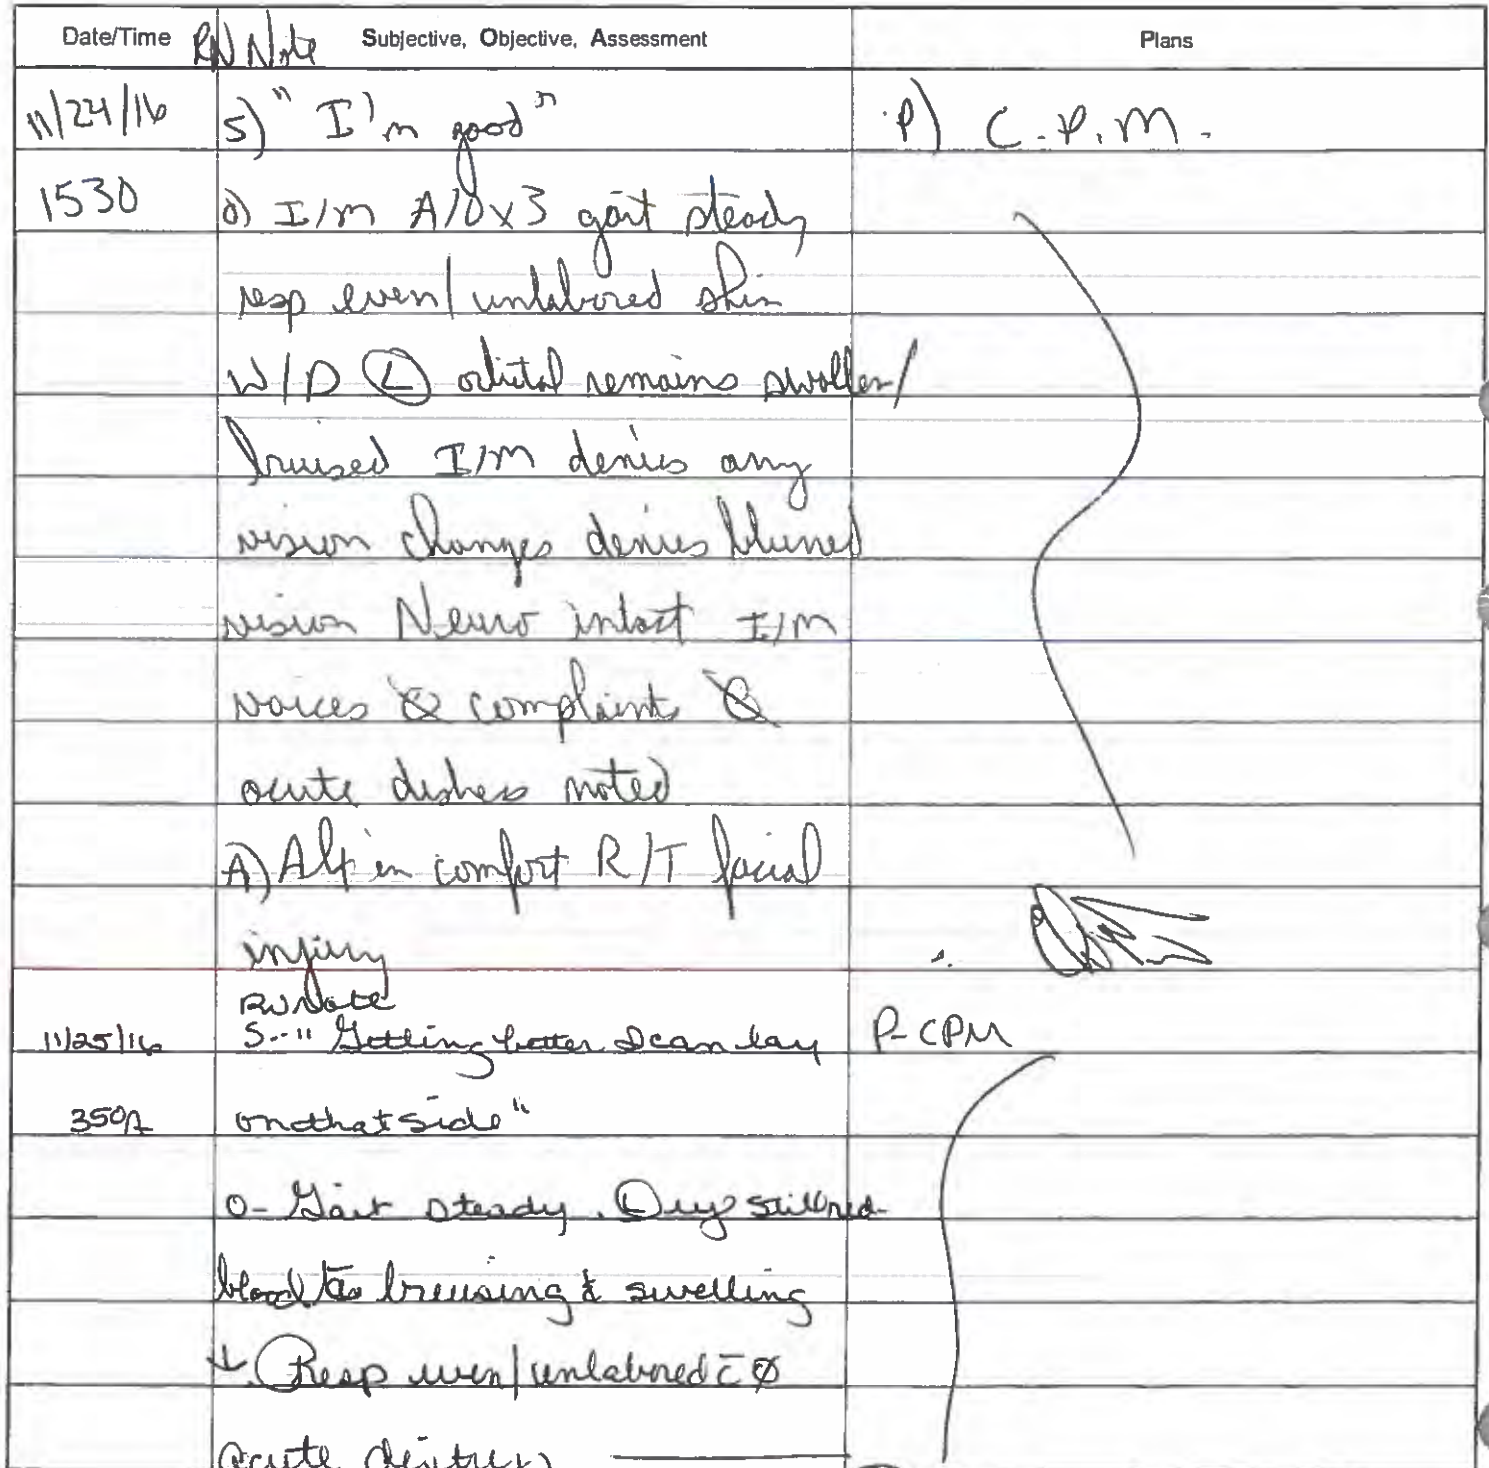 Date/Time RN Note Subjective, Objective, Assessment Plans
11/24/16 S) "I'm good" P) C.P.M.
1530 O) I/m A/Ox3 gait steady
resp even/unlabored skin
W/D Ⓛ orbital remains swollen/
bruised I/M denies any
vision changes denies blurred
vision Neuro intact I/M
voices Ø complaints Ø
acute distress noted
A) Alt in comfort R/T facial
injury
RN Note
11/25/16 S-" Getting better I can lay P- CPM
350A on that side"
O- Gait steady. Ⓛ eye still red
blood bruising & swelling
↓. Resp even/unlabored c̄ Ø
acute distress